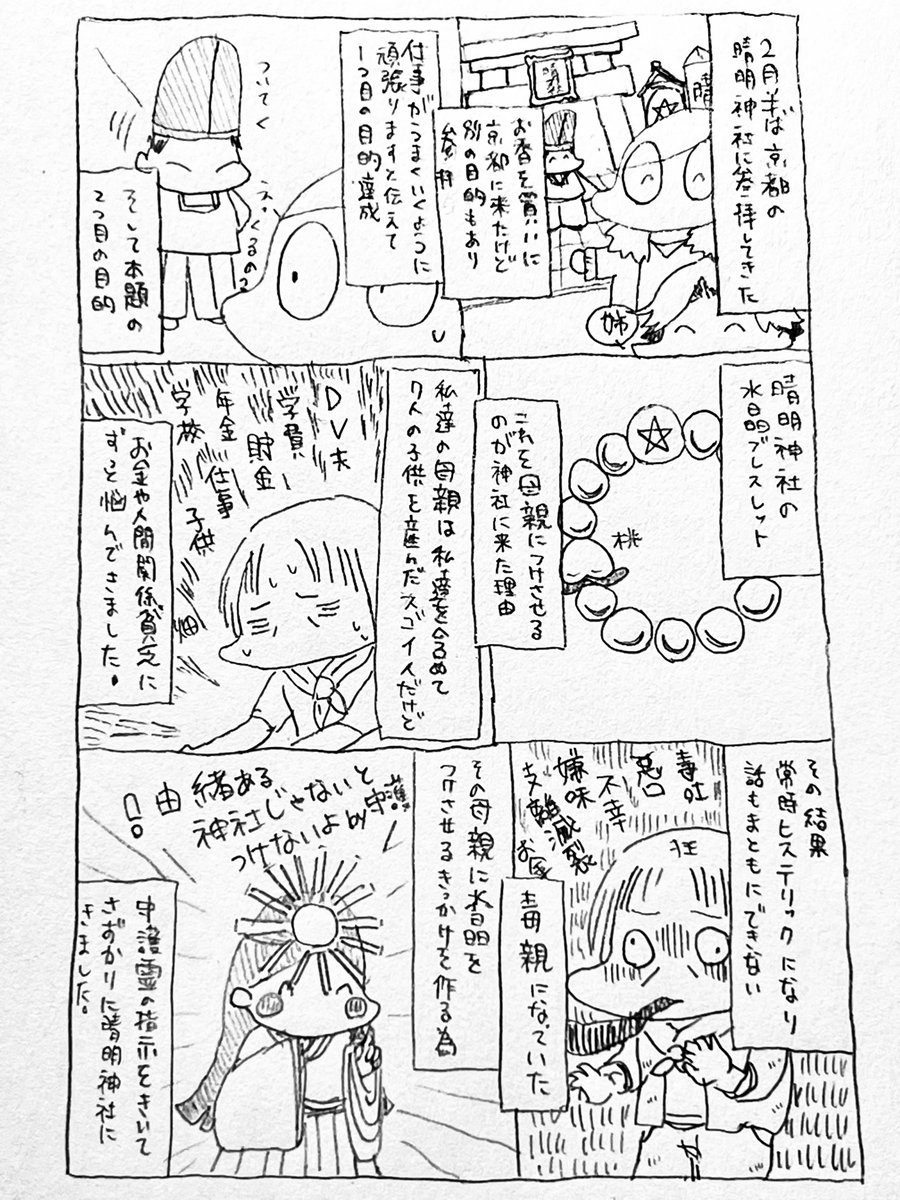 2月半ば京都の
晴明神社に参拝してきた
晴
お香を買いに
京都に来たけど
別の目的もあり
参拝
姉
仕事がうまくいくように
頑張りますと伝えて
1つ目の目的達成
ついてく
えっくるの?
そして本題の
2つ目の目的
晴明神社の
水晶ブレスレット
桃
これを母親につけさせる
のが神社に来た理由
私達の母親は私達を含めて
7人の子供を産んだスゴイ人だけど
DV夫
学費
貯金
年金
仕事
学校
子供
畑
お金や人間関係貧乏に
ずっと悩んできました。
その結果
常時ヒステリックになり
話もまともにできない
毒吐
悪口
不幸
嫌味
支離滅裂
狂
毒親になっていた
その母親に水晶を
つけさせるきっかけを作る為
由緒ある
神社じゃないと
つけないよ by守護
守護霊の指示をきいて
さずかりに晴明神社に
きました。